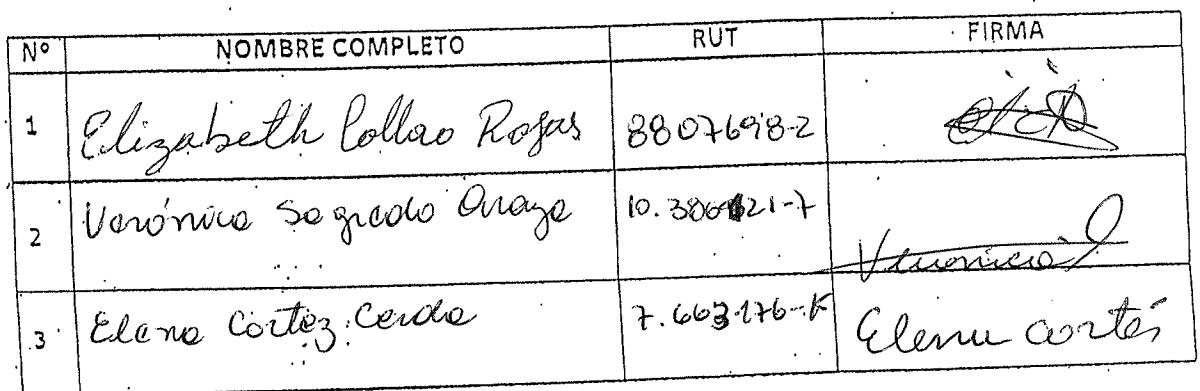 Nº NOMBRE COMPLETO RUT FIRMA
1 Elizabeth Collao Rojas 8807698-2
2 Verónica Sagredo Araya Veronica
3 Elena Cortéz Cerda 7.663.176-K Elena Cortés